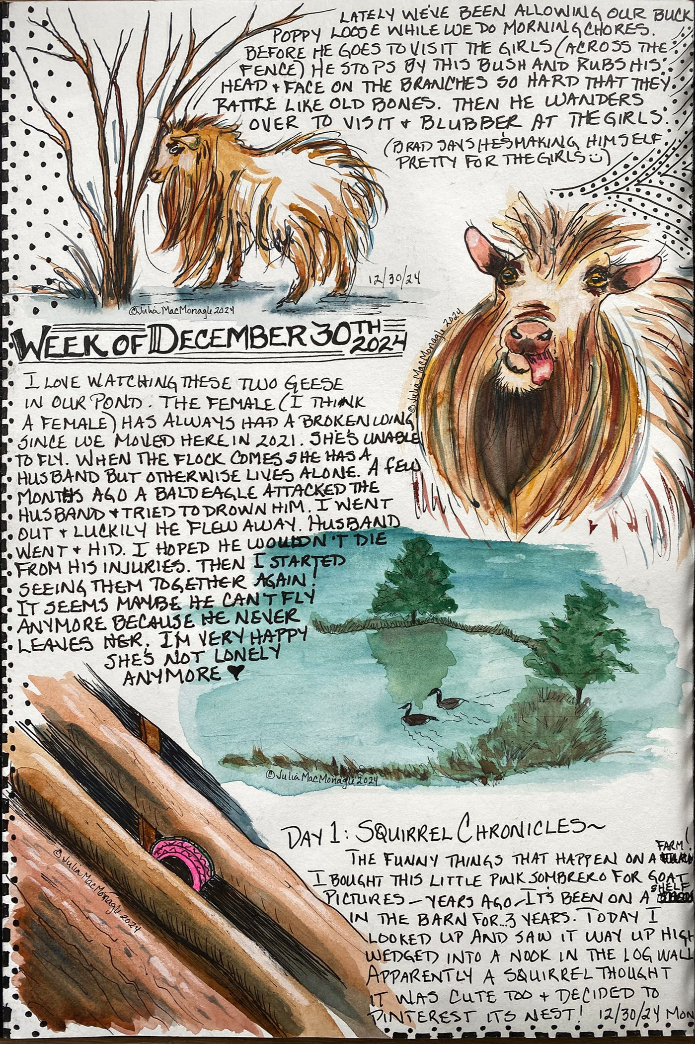 LATELY WE'VE BEEN ALLOWING OUR BUCK
POPPY LOOSE WHILE WE DO MORNING CHORES.
BEFORE HE GOES TO VISIT THE GIRLS (ACROSS THE
FENCE) HE STOPS BY THIS BUSH AND RUBS HIS
HEAD + FACE ON THE BRANCHES SO HARD THAT THEY
RATTLE LIKE OLD BONES. THEN HE WANDERS
OVER TO VISIT + BLUBBER AT THE GIRLS.
(BRAD SAYS HE'S MAKING HIMSELF
PRETTY FOR THE GIRLS ☺)
12/30/24
©Julia MacMonagle 2024
©Julia MacMonagle 2024
WEEK OF DECEMBER 30TH
2024
I LOVE WATCHING THESE TWO GEESE
IN OUR POND. THE FEMALE (I THINK
A FEMALE) HAS ALWAYS HAD A BROKEN WING
SINCE WE MOVED HERE IN 2021. SHE'S UNABLE
TO FLY. WHEN THE FLOCK COMES SHE HAS A
HUSBAND BUT OTHERWISE LIVES ALONE. A FEW
MONTHS AGO A BALD EAGLE ATTACKED THE
HUSBAND + TRIED TO DROWN HIM. I WENT
OUT + LUCKILY HE FLEW AWAY. HUSBAND
WENT + HID. I HOPED HE WOULDN'T DIE
FROM HIS INJURIES. THEN I STARTED
SEEING THEM TOGETHER AGAIN!
IT SEEMS MAYBE HE CAN'T FLY
ANYMORE BECAUSE HE NEVER
LEAVES HER. I'M VERY HAPPY
SHE'S NOT LONELY
ANYMORE ♥
©Julia MacMonagle 2024
©Julia MacMonagle 2024
DAY 1: SQUIRREL CHRONICLES~
THE FUNNY THINGS THAT HAPPEN ON A FARM!
I BOUGHT THIS LITTLE PINK SOMBRERO FOR GOAT
PICTURES – YEARS AGO – IT'S BEEN ON A SHELF
IN THE BARN FOR..3 YEARS. TODAY I
LOOKED UP AND SAW IT WAY UP HIGH
WEDGED INTO A NOOK IN THE LOG WALL
APPARENTLY A SQUIRREL THOUGHT
IT WAS CUTE TOO + DECIDED TO
PINTEREST ITS NEST! 12/30/24 MON